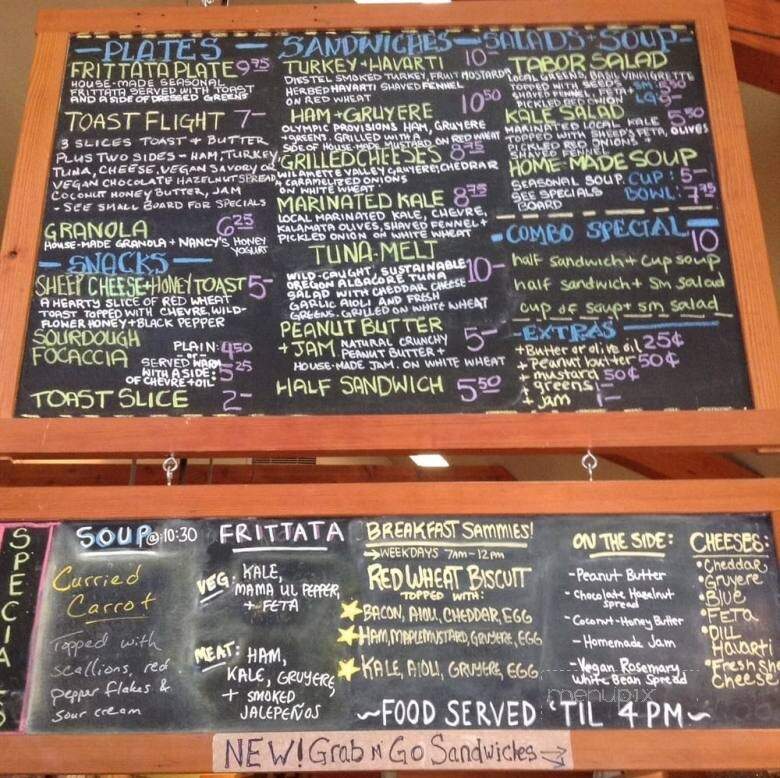 PLATES
FRITTATA PLATE 9 75
HOUSE-MADE SEASONAL
FRITTATA SERVED WITH TOAST
AND A SIDE OF DRESSED GREENS
TOAST FLIGHT 7-
3 SLICES TOAST + BUTTER
PLUS TWO SIDES - HAM, TURKEY,
TUNA, CHEESE, VEGAN SAVORY OR
VEGAN CHOCOLATE HAZELNUT SPREAD,
COCONUT HONEY BUTTER, JAM
- SEE SMALL BOARD FOR SPECIALS
GRANOLA 6 25
HOUSE-MADE GRANOLA + NANCY'S HONEY
YOGURT
SNACKS
SHEEP CHEESE + HONEY TOAST 5-
A HEARTY SLICE OF RED WHEAT
TOAST TOPPED WITH CHEVRE, WILD-
FLOWER HONEY + BLACK PEPPER
SOURDOUGH
FOCACCIA
PLAIN: 4 50
-OR-
SERVED WARM
WITH A SIDE: 5 25
OF CHEVRE + OIL
TOAST SLICE 2-
SANDWICHES
TURKEY + HAVARTI 10-
DIESTEL SMOKED TURKEY, FRUIT MOSTARDA
HERBED HAVARTI SHAVED FENNEL
ON RED WHEAT
HAM + GRUYERE 10 50
OLYMPIC PROVISIONS HAM, GRUYERE
+ GREENS. GRILLED WITH A
SIDE OF HOUSE-MADE MUSTARD ON RED WHEAT
GRILLED CHEESES 8 75
WILAMETTE VALLEY GRUYERE, CHEDDAR
+ CARAMELIZED ONIONS
ON WHITE WHEAT
MARINATED KALE 8 75
LOCAL MARINATED KALE, CHEVRE,
KALAMATA OLIVES, SHAVED FENNEL +
PICKLED ONION ON WHITE WHEAT
TUNA-MELT 10-
WILD-CAUGHT, SUSTAINABLE
OREGON ALBACORE TUNA
SALAD WITH CHEDDAR CHEESE
GARLIC AIOLI AND FRESH
GREENS. GRILLED ON WHITE WHEAT
PEANUT BUTTER
+ JAM 5-
NATURAL CRUNCHY
PEANUT BUTTER +
HOUSE-MADE JAM. ON WHITE WHEAT
HALF SANDWICH 5 50
SALADS + SOUP
TABOR SALAD
LOCAL GREENS, BASIL VINAIGRETTE
TOPPED WITH SEEDS, SM 5 50
SHAVED FENNEL, FETA + LG 9-
PICKLED RED ONION
KALE SALAD 5 50
MARINATED LOCAL KALE
TOPPED WITH SHEEP'S FETA, OLIVES
PICKLED RED ONIONS +
SHAVED FENNEL
HOME-MADE SOUP
SEASONAL SOUP. CUP: 5-
SEE SPECIALS BOWL: 7 75
BOARD
COMBO SPECIAL 10
half sandwich + cup soup
half sandwich + sm salad
cup of soup + sm salad
EXTRAS
+ Butter or olive oil 25¢
+ Peanut butter 50¢
+ mustard 50¢
+ greens 1-
+ jam
SPECIALS
SOUP @ 10:30
Curried
Carrot
Topped with
scallions, red
pepper flakes &
sour cream
FRITTATA
VEG: KALE,
MAMA LIL PEPPER,
+ FETA
MEAT: HAM,
KALE, GRUYERE
+ SMOKED
JALEPEÑOS
BREAKFAST SAMMIES!
→ WEEKDAYS 7AM-12PM
RED WHEAT BISCUIT
TOPPED WITH:
BACON, AIOLI, CHEDDAR, EGG
HAM, MAPLE MUSTARD, GRUYERE, EGG
KALE, AIOLI, GRUYERE, EGG
ON THE SIDE:
- Peanut Butter
- Chocolate Hazelnut
Spread
- Coconut-Honey Butter
- Homemade Jam
- Vegan Rosemary
White Bean Spread
CHEESES:
• Cheddar
• Gruyere
• Blue
• FETA
• DILL
Havarti
• Fresh Sheep
Cheese
menupix
~FOOD SERVED 'TIL 4 PM~
NEW! Grab N' Go Sandwiches →